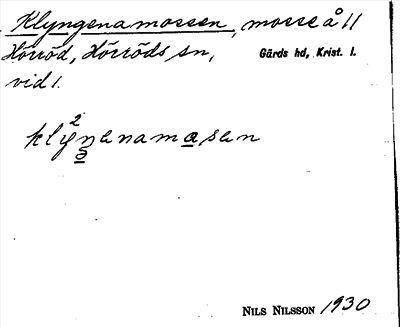 Klyngenamossen, mosse å 11
Hörröd, Hörröds sn, Gärds hd, Krist. l.
vid 1.
klyŋenamasen
NILS NILSSON 1930